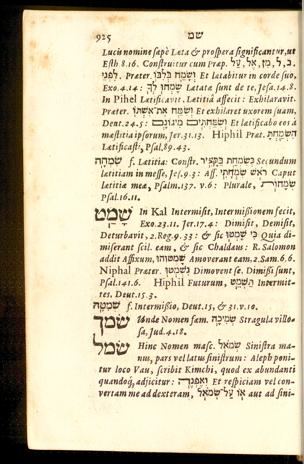 925 שמ
Lucis nomine sæpe Læta & prospera significantur, ut
Esth 8.16. Construitur cum Præp. ב, ל, מן, אל, על
Præter. לפני וְשָׂמַח בְּלִבּוֹ Et lætabitur in corde suo,
Exo. 4.14: שִׂמְחוּ לָךְ Lætata sunt de te, Jesa. 14.8.
In Pihel Lætificavit. Lætitiâ affecit: Exhilaravit.
Præter. וְשִׂמַּח אֶת אִשְׁתּוֹ Et exhilarabit uxorem suam,
Deut. 24.5: וְשִׂמַּחְתִּים מִיגוֹנָם Et lætificabo eos à
mœstitia ipsorum, Jer. 31.13. Hiphil Præt. הִשְׂמַחְתָּ
Lætificasti, Psal. 89.43.
שִׂמְחָה f. Lætitia: Constr. כְּשִׂמְחַת בַּקָּצִיר Secundum
lætitiam in messe, Jes. 9.3: Aff. רֹאשׁ שִׂמְחָתִי Caput
lætitiæ meæ, Psalm. 137. v. 6: Plurale, שְׂמָחוֹת,
Psal. 16.11.
שָׁמַט In Kal Intermisit, Intermissionem fecit,
Exo. 23.11. Jer. 17.4: Dimisit, Demisit,
Deturbavit, 2. Reg. 9.33: & sic כִּי שָׁמְטוּ Quia di-
miserant scil. eam, & sic Chaldæus: R. Salomon
addit Affixum, שמטוהו Amoverant eam, 2. Sam. 6.6.
Niphal Præter. נִשְׁמְטוּ Dimoventse. Dimissi sunt,
Psal. 141.6. Hiphil Futurum, תַּשְׁמֵט Intermit-
tes. Deut. 15.3.
שְׁמִטָּה f. Intermissio, Deut. 15, & 31. v. 10.
שׂמך Unde Nomen fœm. שְׂמִיכָה Stragula villo-
sa, Jud. 4.18.
שׂמל Hinc Nomen masc. שְׂמֹאל Sinistra ma-
nus, pars vel latus sinistrum: Aleph poni-
tur loco Vau, scribit Kimchi, quod ex abundanti
quandoq́; adjicitur: וְאֶפְנֶה Et respiciam vel con-
vertam me ad dexteram, אוֹ עַל שְׂמֹאל aut ad sini-